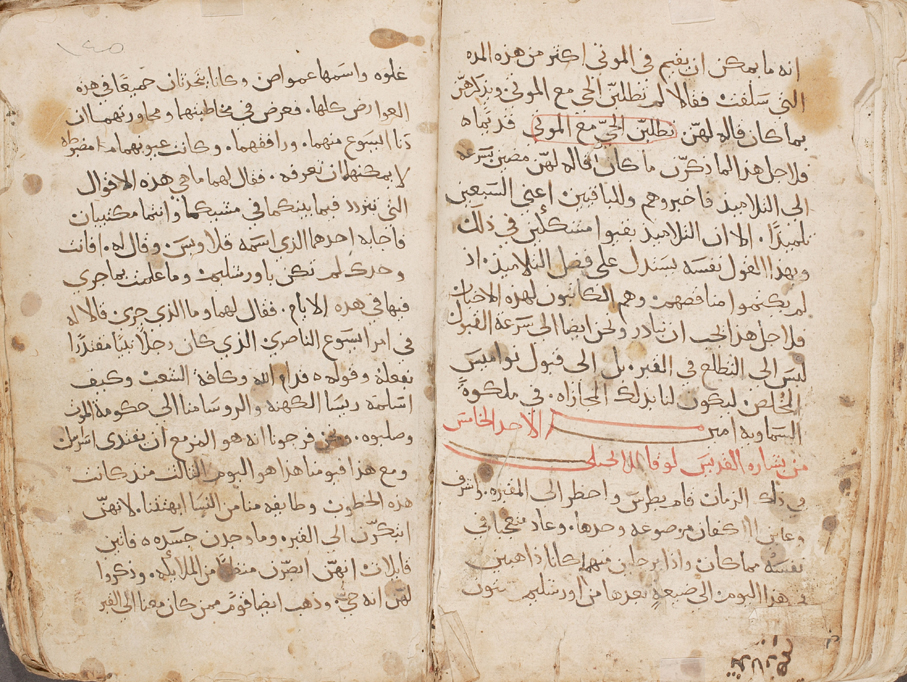 انه ما يمكن ان يقيم في الموتى اكثر من هذه المده
التي سلفت فقالا لم تطلبن الحي مع الموتى ويذكرهن
بما كان قاله لهن تطلبن الحي مع الموتى قدتماه
ولاجل هذا لما ذكرن ما كان قاله لهن مضين بسرعه
الى التلاميذ فاخبروهم وللباقين اعني السبعين
تلميذا. الا ان التلاميذ بقيوا متشككين في ذلك
وبهذا القول نفسه يستدل على فحص التلاميذ. اذ
لم يكتموا مناقصهم وهم الكاتبون لهذه الاخبار
فلاجل هذا يجب ان نبادر ونحن ايضا الى سرعة القبول
ليس الى التطلع في القبر بل الى قبول نواميس
المخلص ليكون لنا بذلك المجازاه في ملكوته
السماويه امين الاحد الخامس
من بشاره القديس لوقا الانجيلي
في ذلك الزمان قام بطرس واحظر الى المقبره. واشرف
وعاين الاكفان موضوعه وحدها. وعاد متعجبا في
نفسه مما كان. واذا برجلين منهم كانا ذاهبين
في هذا اليوم الى ضيعه بعدها من اورشليم ستون
غلوه واسمها عمواص وكانا يتحدثان جميعا في هذه
العوارض كلها. فعرض في مخاطبتهما ومحاورتهما ان
دنا ايسوع منهما. ورافقهما. وكانت عيونهما مضبوطه
لا يمكنهما ان تعرفه. فقال لهما ما هي هذه الاقوال
التي تتردد فيما بينكما في مشيكما وانتما مكتيبان
فاجابه احدهما الذي اسمه قلاوبس وقال له. افانت
وحدك لم تكن باورشليم وما علمت بما جرى
فيها في هذه الايام. فقال لهما وما الذي جرى فقالا له
في امر ايسوع الناصري الذي كان رجلا نبيا مقتدرا
بفعله وقوله قدام الله وكافة الشعب وكيف
اسلمه ريسا الكهنه والروسا منا الى حكومة الموت
وصلبوه. ونحن فرجونا انه هو المزمع ان يفتدي اسريل
ومع هذا فيومنا هذا هو اليوم الثالث منذ كانت
هذه الخطوب وطايفه منا من النسا ابهتننا. لانهن
ابتكرن الى القبر. وما وجدن جسده فاتين
قايلات انهن ابصرن منظرا من الملايكه. وذكروا
لهن انه حي. وذهب ايضا قوم ممن كان معنا الى القبر